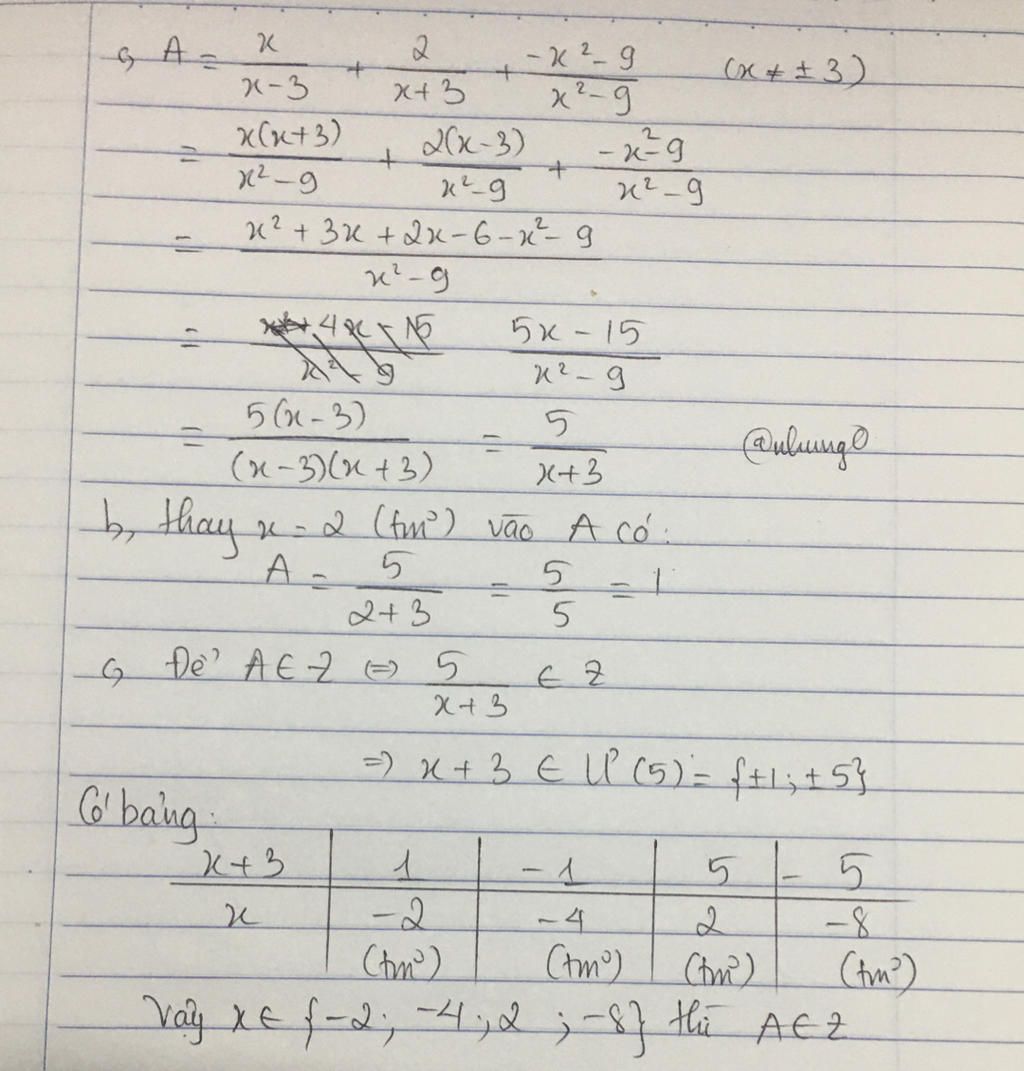 a, A = x/(x-3) + 2/(x+3) + (-x²-9)/(x²-9) (x ≠ ± 3)
= x(x+3)/(x²-9) + 2(x-3)/(x²-9) + (-x²-9)/(x²-9)
= (x² + 3x + 2x - 6 - x² - 9)/(x²-9)
= (5x - 15)/(x² - 9)
= 5(x-3)/((x-3)(x+3)) = 5/(x+3) @nhung
b, thay x = 2 (tm°) vào A có:
A = 5/(2+3) = 5/5 = 1
c, Để A ∈ Z ⇔ 5/(x+3) ∈ Z
⇒ x + 3 ∈ Ư(5) = {±1; ±5}
Có bảng:
x+3 | 1 | -1 | 5 | - 5
x | -2 | -4 | 2 | -8
(tm°) (tm°) (tm°) (tm°)
Vậy x ∈ {-2; -4; 2; -8} thì A ∈ Z